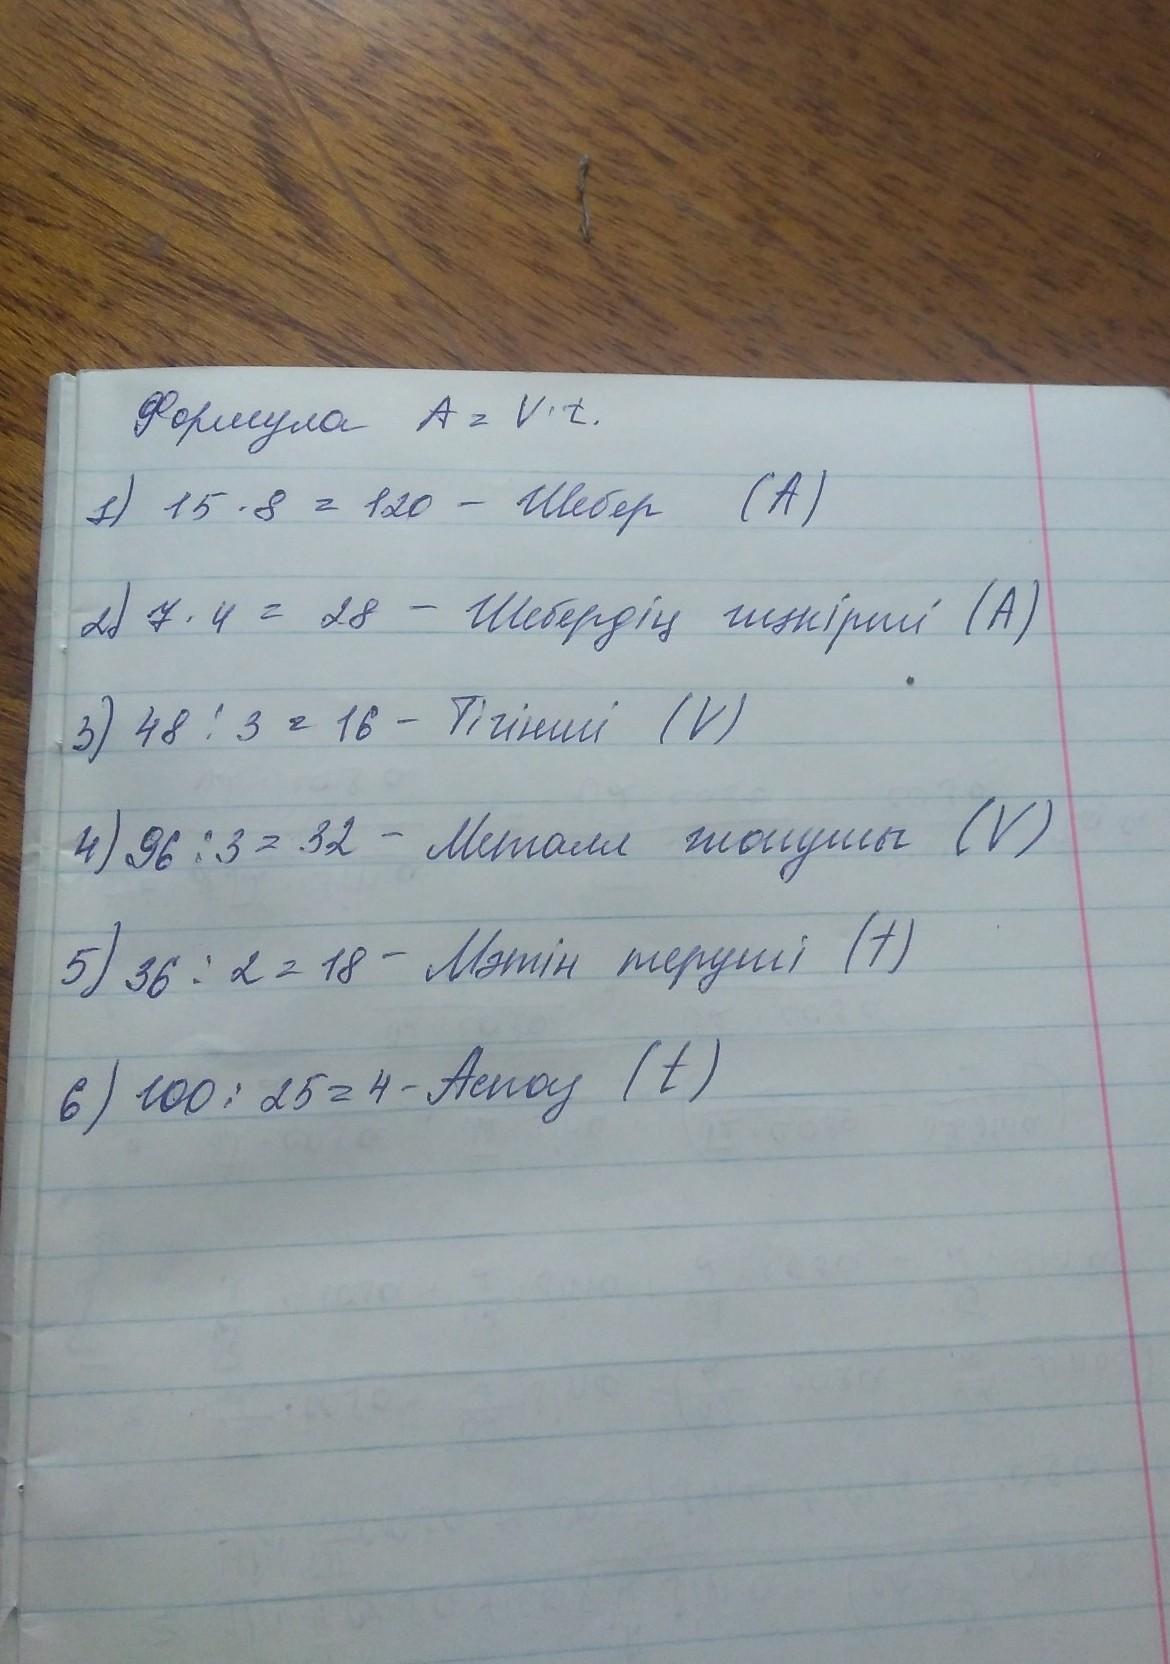 Формула A = V·t.
1) 15 · 8 = 120 – Шебер (A)
2) 7 · 4 = 28 – Шебердің шәкірті (A)
3) 48 : 3 = 16 – Тігінші (V)
4) 96 : 3 = 32 – Металл жонушы (V)
5) 36 : 2 = 18 – Мәтін теруші (t)
6) 100 : 25 = 4 – Аспаз (t)